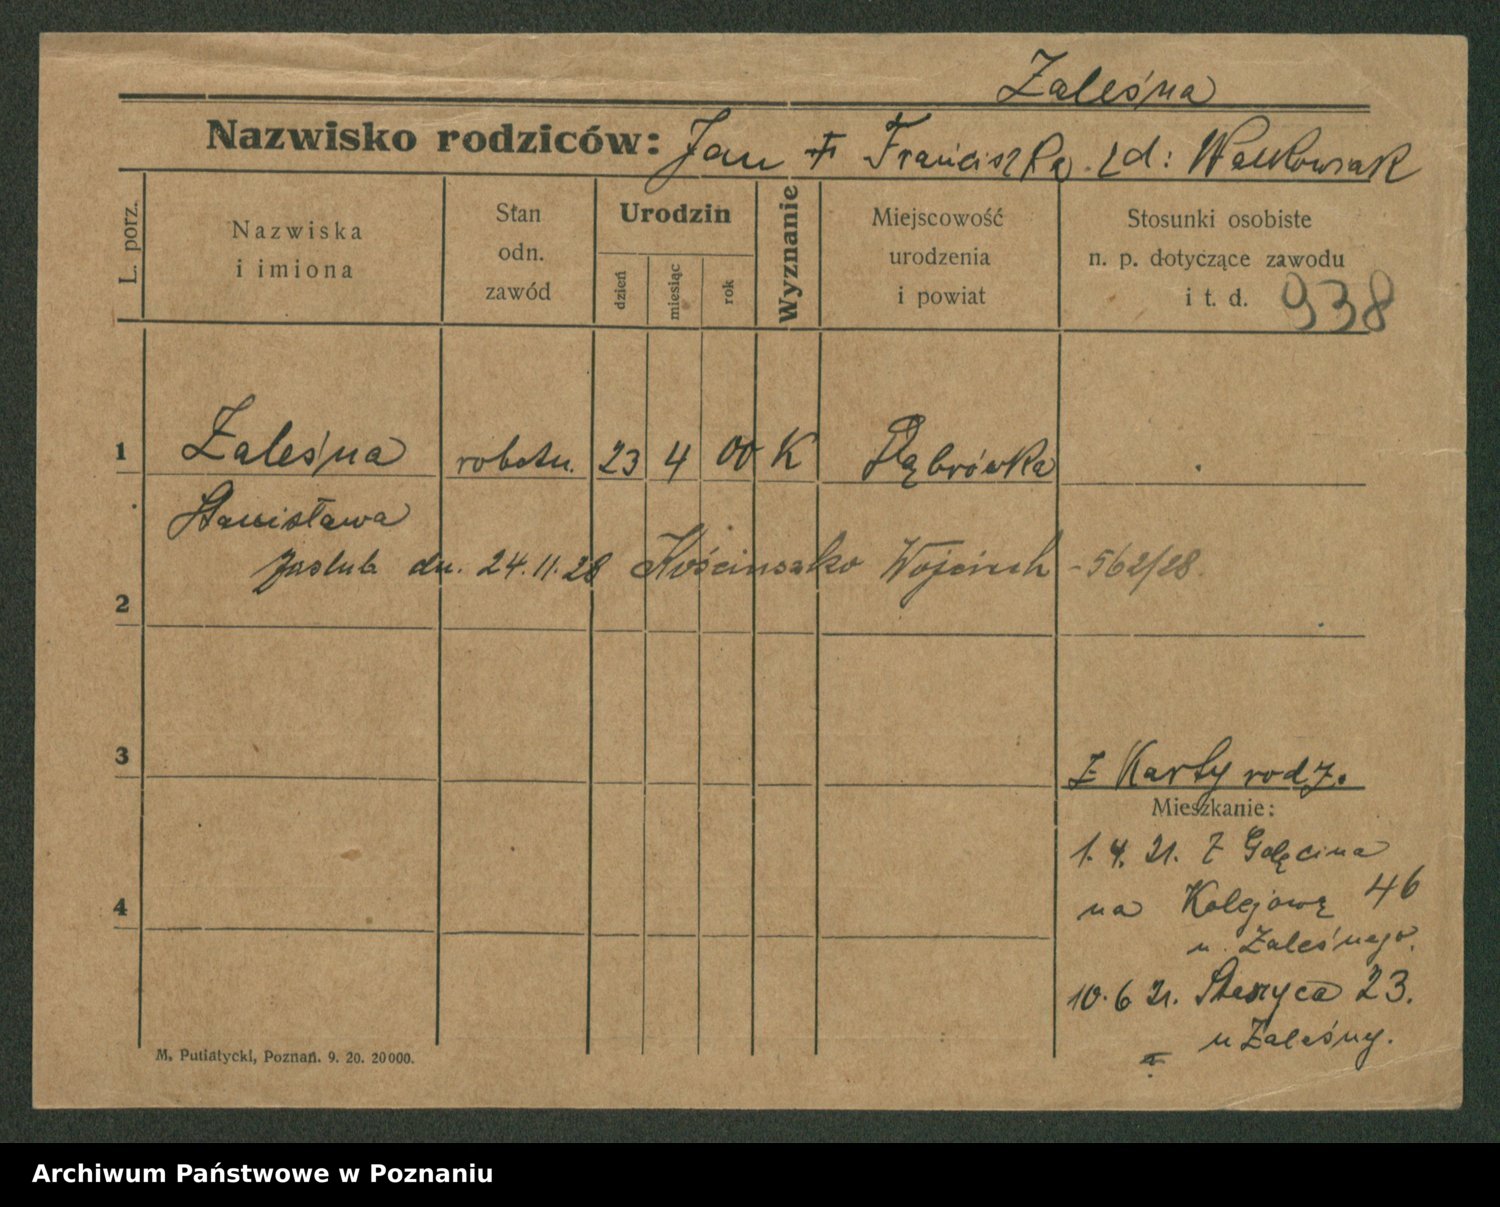 Zaleśna
Nazwisko rodziców: Jan + Franciszka zd: Walkowiak
L. porz.
Nazwiska
i imiona
Stan
odn.
zawód
Urodzin
dzień
miesiąc
rok
Wyznanie
Miejscowość
urodzenia
i powiat
Stosunki osobiste
n. p. dotyczące zawodu
i t. d. 938
1 Zaleśna robotn. 23 4 00 K Dąbrówka
Stanisława
zaślub dn. 24.11.28 Wojciech - 562/28.
2
3
Z Karty rodz.
Mieszkanie:
1. 4. 21. z Golęcina
4
na Kolejową 46
u Zaleśnego.
10. 6 21. 23.
u Zaleśny.
M. Putiatycki, Poznań. 9. 20. 20000.
Archiwum Państwowe w Poznaniu